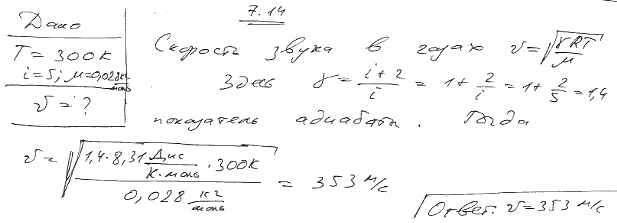 7.14
Дано
T = 300К
i = 5; μ = 0,028 кг/моль
v = ?
Скорость звука в газах v = √(γRT/μ)
Здесь γ = (i+2)/i = 1 + 2/i = 1 + 2/5 = 1,4
показатель адиабаты. Тогда
v = √(1,4·8,31 Дж/(К·моль) · 300К / 0,028 кг/моль) = 353 м/с
Ответ: v = 353 м/с